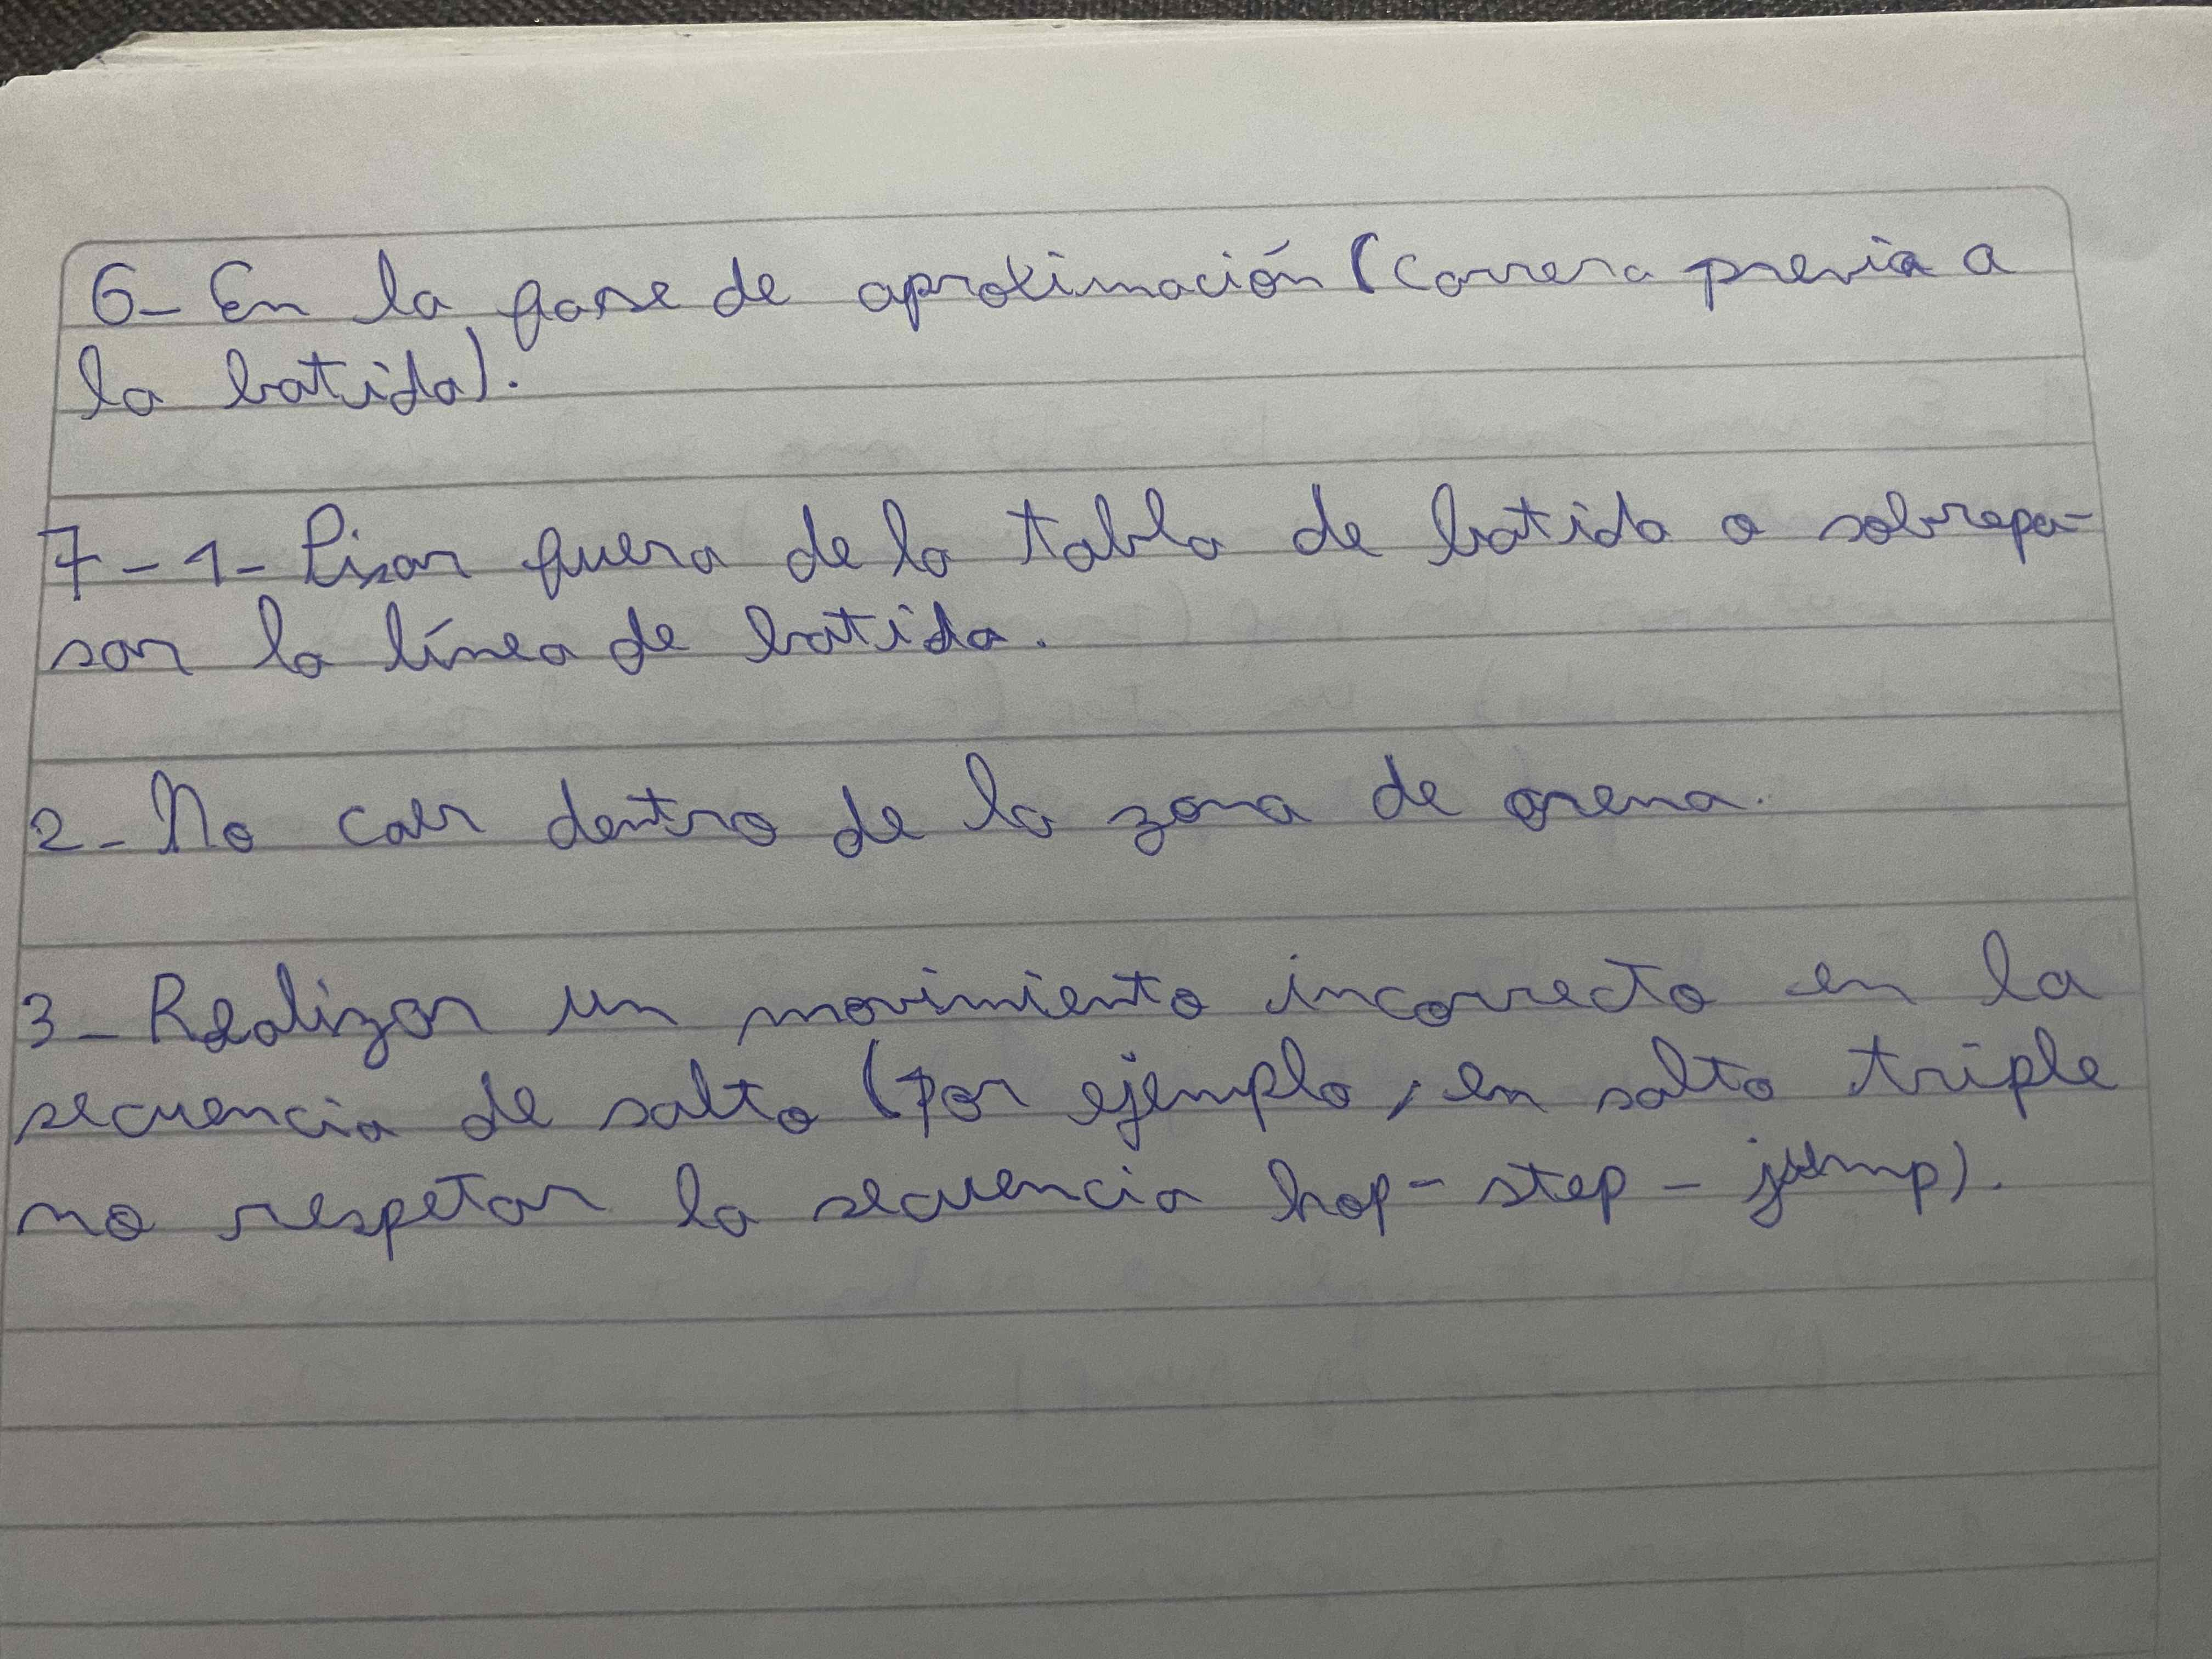 6- En la fase de aproximación (Carrera previa a
la batida).
7-1- Pisar fuera de la tabla de batida o sobrepa-
sar la línea de batida.
2- No caer dentro de la zona de arena.
3- Realizar un movimiento incorrecto en la
secuencia de salto (por ejemplo, en salto triple
no respetar la secuencia hop-step-jump).